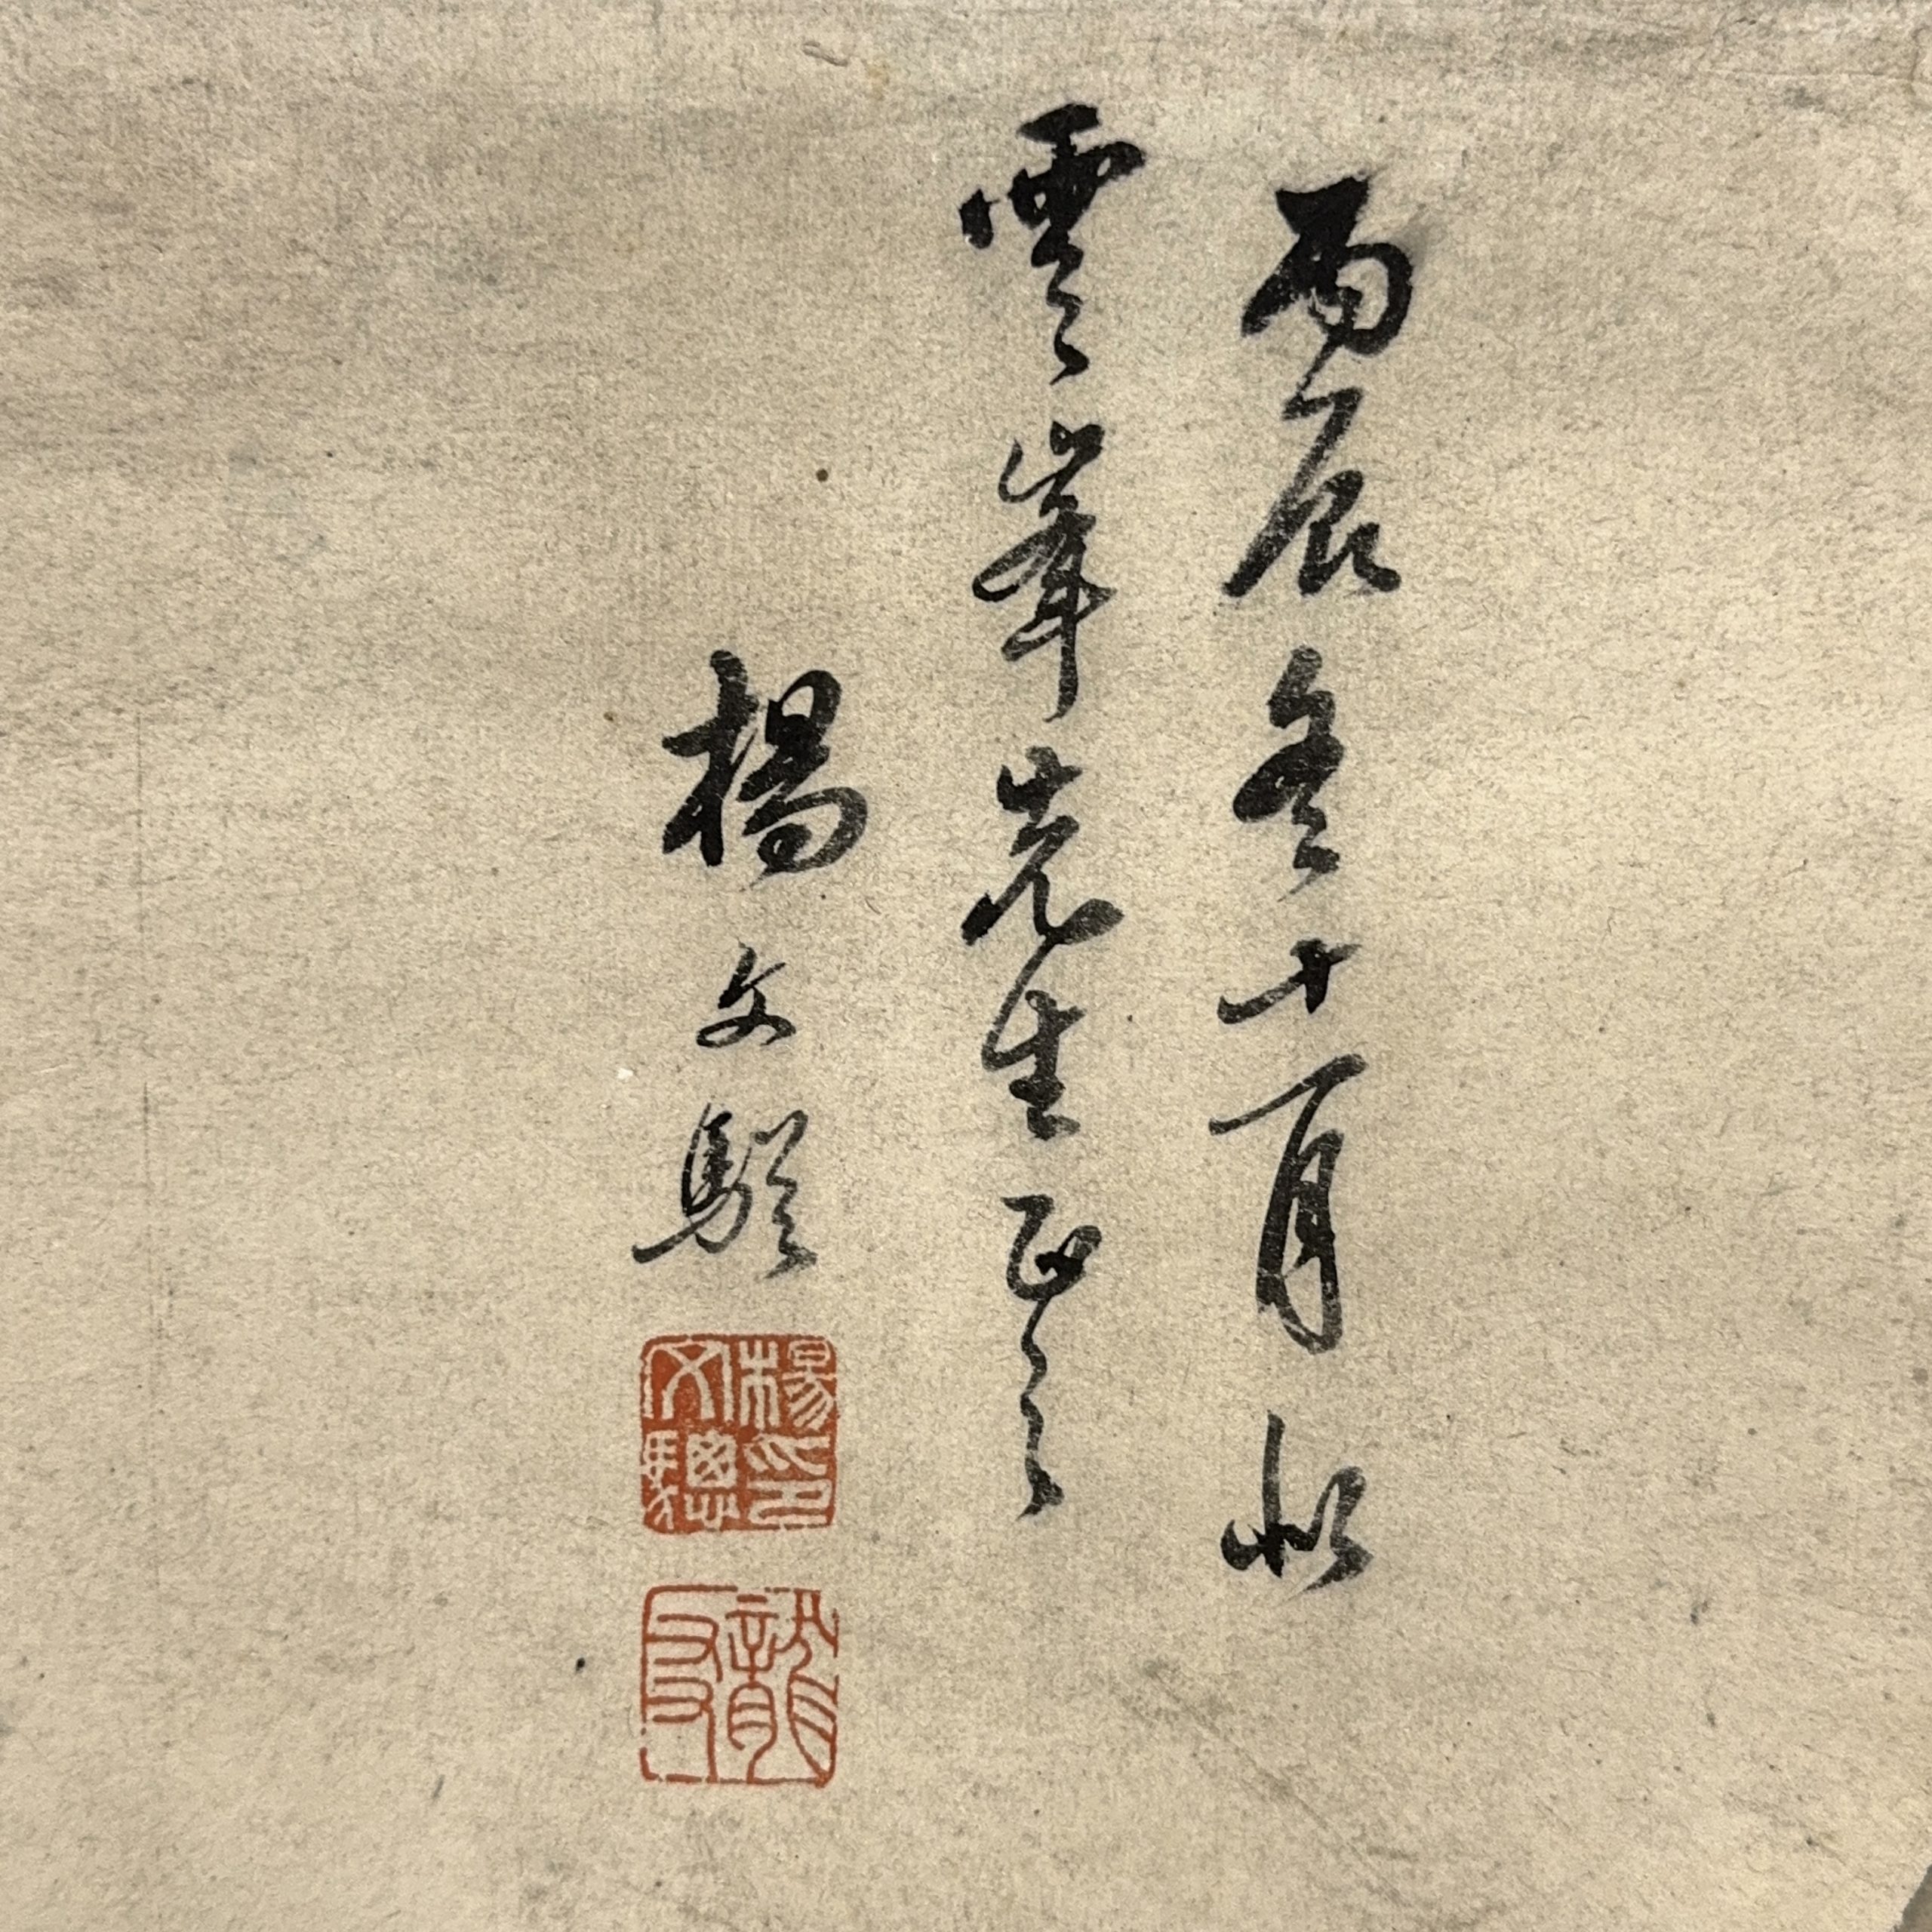 丙辰冬十一月似
雲峯先生正之
楊文驄
楊印文驄
龍友